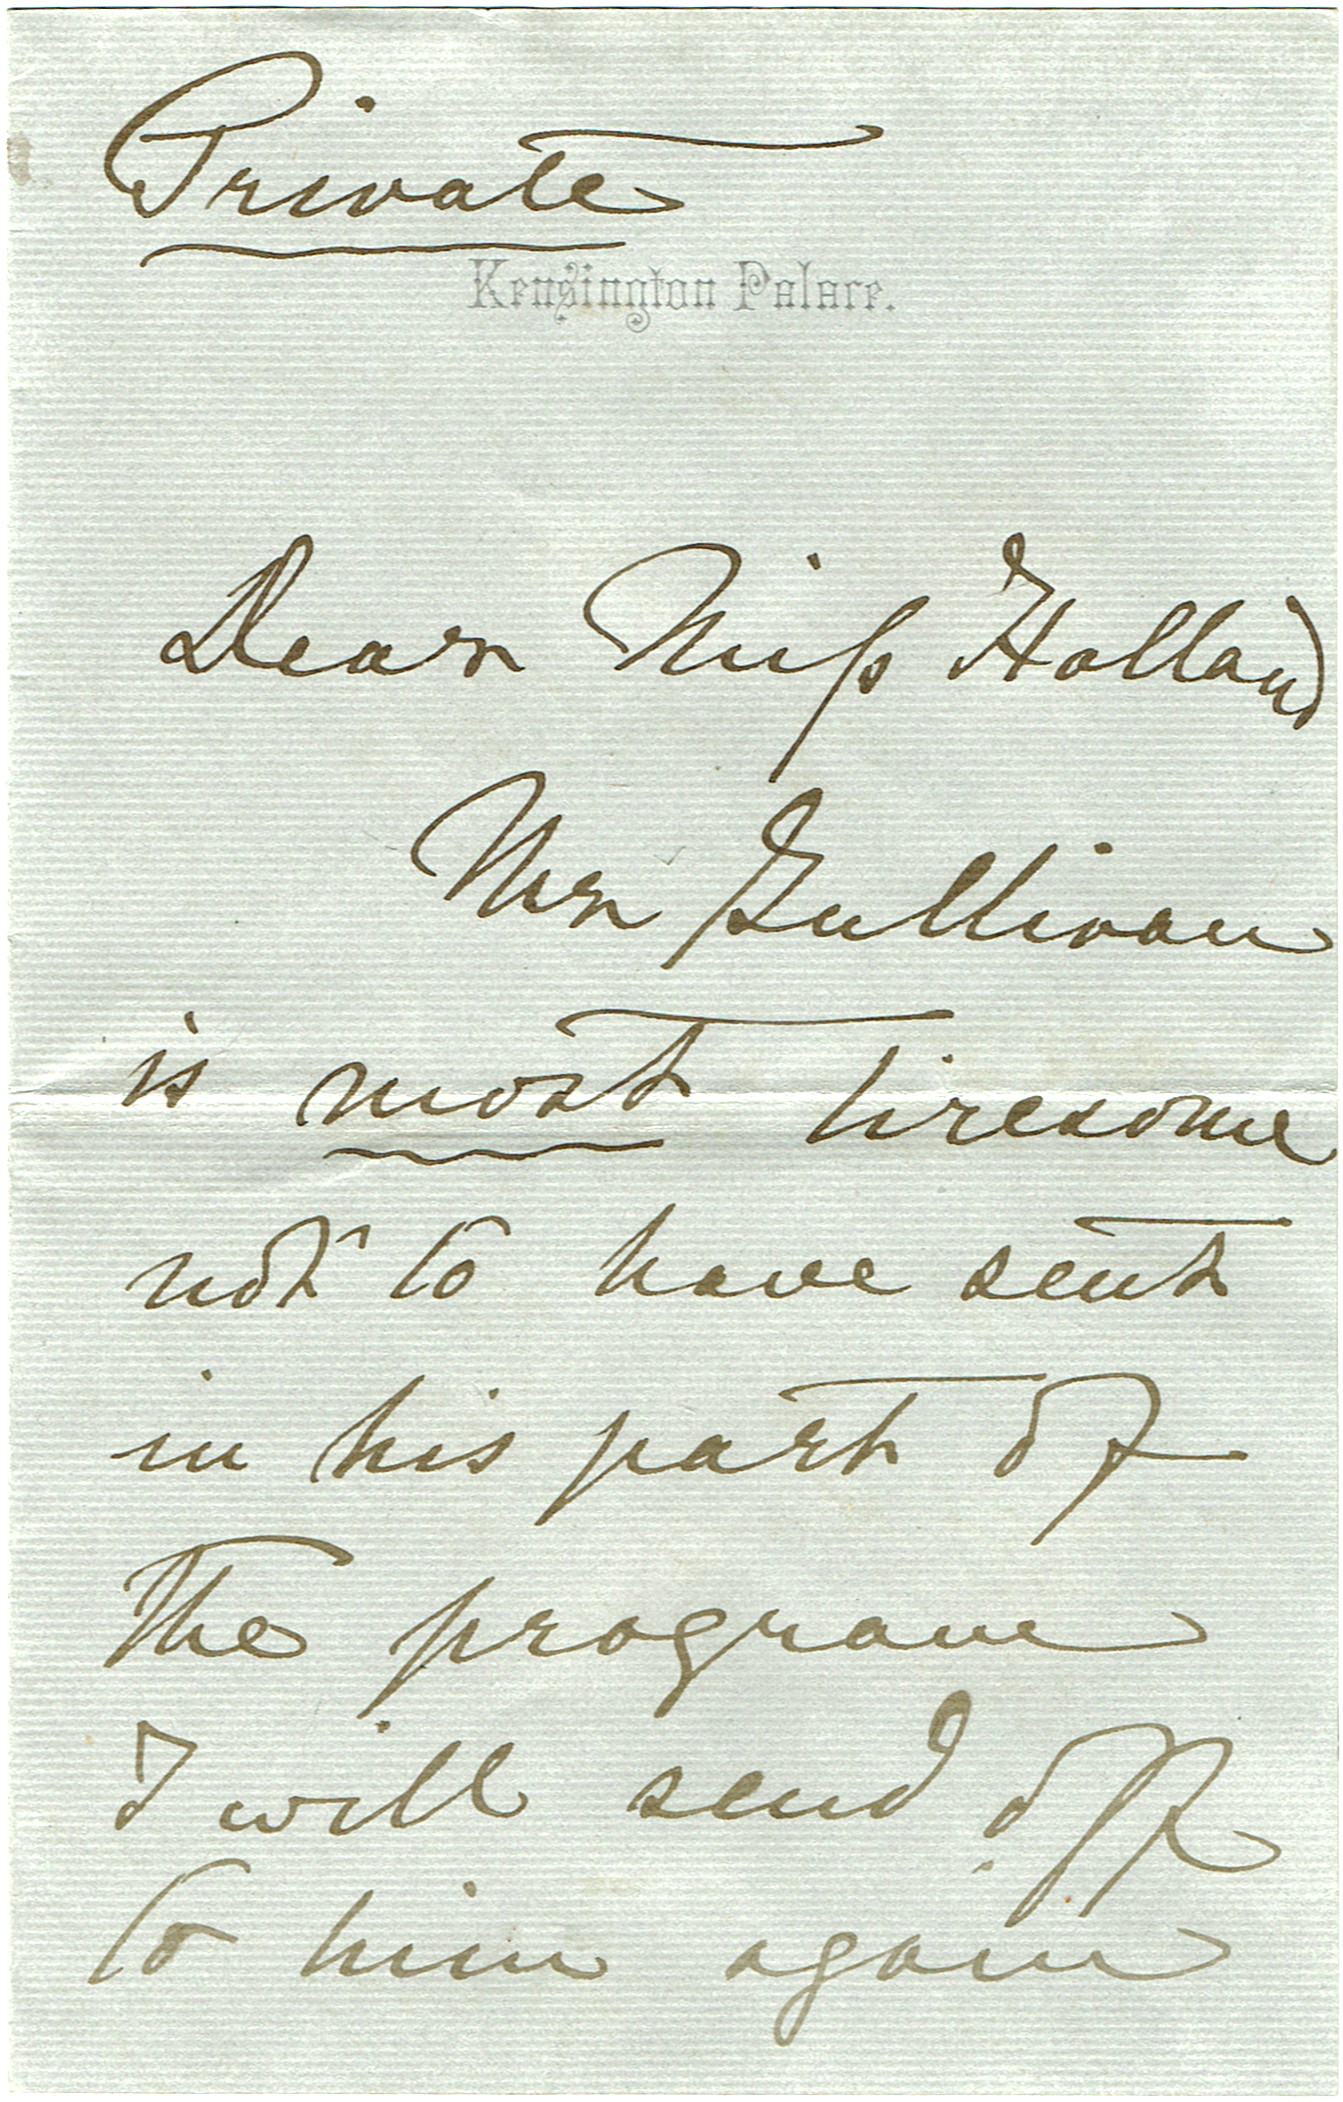 Private
Kensington Palace.
Dear Miss Holland
Mr Sullivan
is most tiresome
not to have sent
in his part of
the programe
I will send off
to him again